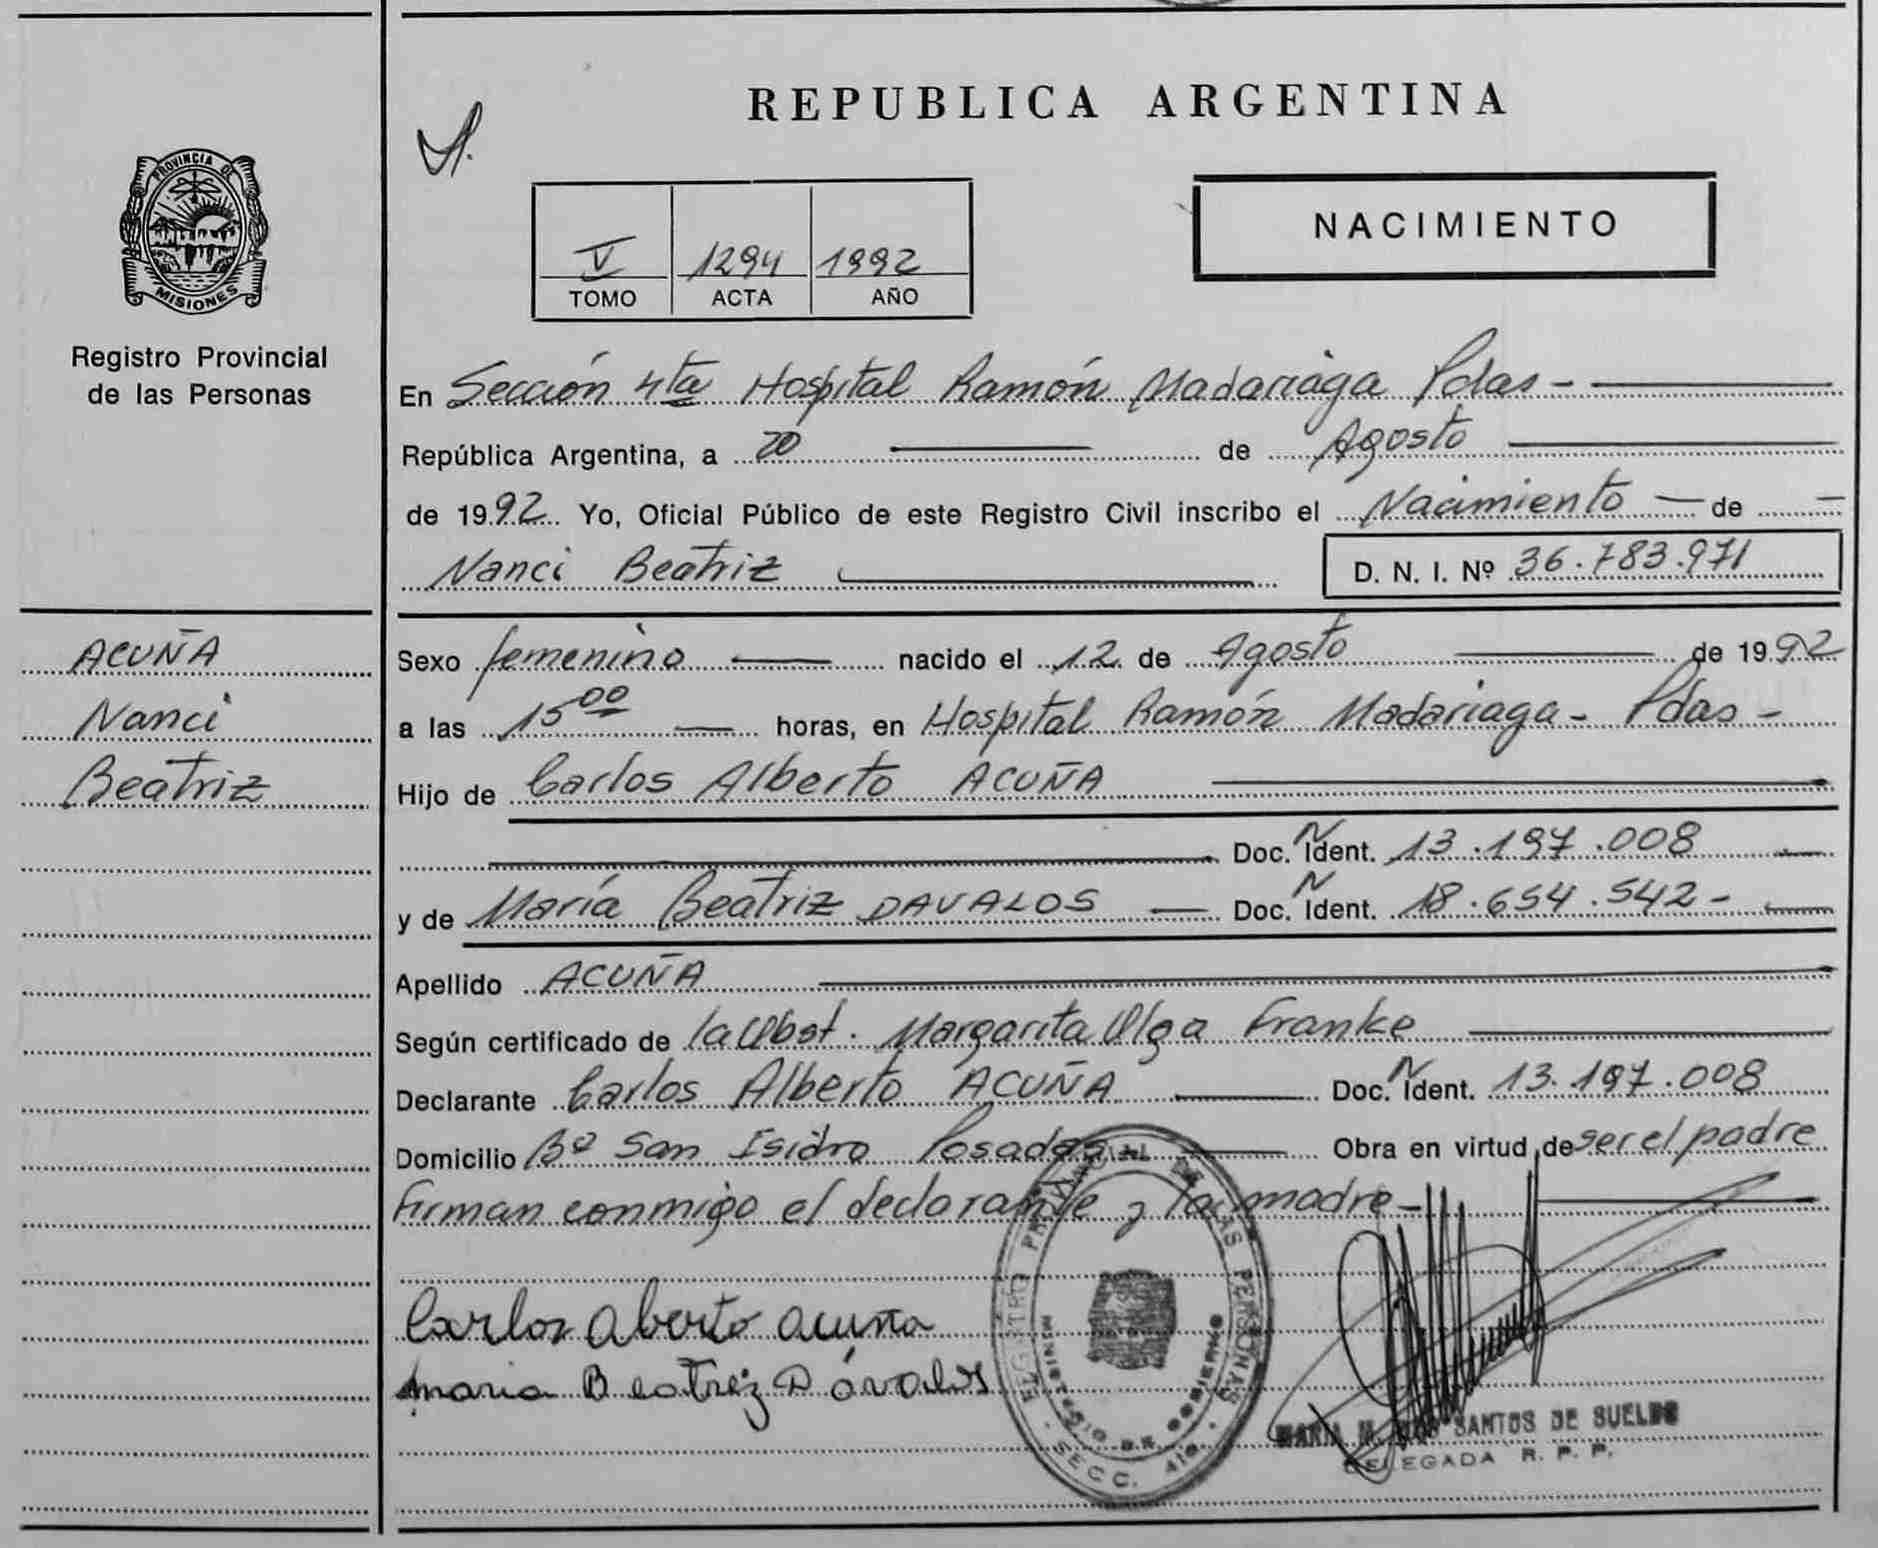 PROVINCIA DE
MISIONES
Registro Provincial
de las Personas
ACUÑA
Nanci
Beatriz
REPUBLICA ARGENTINA
V 1294 1992
TOMO ACTA AÑO
NACIMIENTO
En Sección 4ta Hospital Ramón Madariaga Pdas -
República Argentina, a 20 de Agosto
de 1992 Yo, Oficial Público de este Registro Civil inscribo el Nacimiento de
Nanci Beatriz D. N. I. Nº 36.783.971
Sexo femenino nacido el 12 de Agosto de 1992
a las 15 00 horas, en Hospital Ramón Madariaga - Pdas -
Hijo de Carlos Alberto ACUÑA
Doc. N Ident. 13.197.008
y de María Beatriz DAVALOS Doc. N Ident. 18.654.542 -
Apellido ACUÑA
Según certificado de la Obst. Margarita Olga Franke
Declarante Carlos Alberto ACUÑA Doc. N Ident. 13.197.008
Domicilio Bº San Isidro Posadas Obra en virtud de ser el padre
Firman conmigo el declarante y la madre -
Carlos Aberto acuña
maria Beatriz Dávalos
REGISTRO PROVINCIAL DE LAS PERSONAS
MINISTERIO DE GOBIERNO
SECC. 4ta.
MARIA M. DOS SANTOS DE SUELDO
DELEGADA R. P. P.